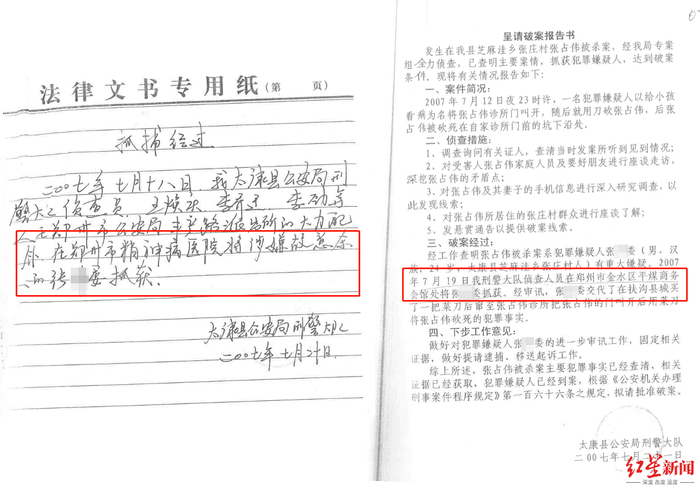 法律文书专用纸（第　页）
抓捕经过
二〇〇七年七月十八日，我太康县公安局刑
警大队侦查员
郑州市公安局丰产路派出所的大力配
合，在郑州市精神病医院将涉嫌故意杀
的张 委抓获.
太康县公安局刑警大队
二〇〇七年七月二十日.
呈请破案报告书
发生在我县芝麻洼乡张庄村张占伟被杀案，经我局专案
组全力侦查，已查明主要案情，抓获犯罪嫌疑人，达到破案
条件。现将有关情况报告如下：
一、案件简况：
2007年7月12日夜23时许，一名犯罪嫌疑人以给小孩
看病为名将张占伟诊所门叫开，随后就用刀砍张占伟，后张
占伟被砍死在自家诊所门前的坑下沿处。
二、侦查措施：
1、调查询问有关证人，查清当时发案所听到见到情况；
2、对受害人张占伟家庭人员及要好朋友进行座谈走访，
深挖张占伟的矛盾点；
3、对张占伟及其妻子的手机信息进行深入研究调查，以
此发现线索；
4、对张占伟所居住的张庄村群众进行座谈了解；
5、发悬赏通告以提供破案线索。
三、破案经过：
经工作查明张占伟被杀案系犯罪嫌疑人张 委（男，汉
族，24岁，太康县芝麻洼乡张庄村人）有重大嫌疑。2007
年7月19日我刑警大队侦查人员在郑州市金水区平煤商务
公馆处将张 委抓获。经审讯，张 委交代了在扶沟县城买
了一把菜刀后窜至张占伟诊所把张占伟的门叫开后用菜刀
将张占伟砍死的犯罪事实。
四、下步工作意见：
做好对犯罪嫌疑人张 委的进一步审讯工作，固定相关
证据，做好提请逮捕、移送起诉工作。
综上所述，张占伟被杀案主要犯罪事实已经查清，相关
证据已经获取，犯罪嫌疑人已经到案，根据《公安机关办理
刑事案件程序规定》第一百六十六条之规定，拟请批准破案。
太康县公安局刑警大队
二00七年七月二十一日
红星新闻
深度 态度 温度